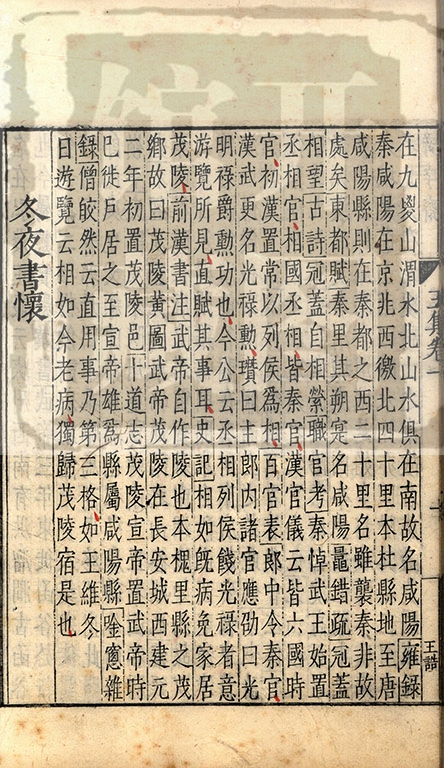 在九嵏山渭水北山水俱在南故名咸陽雍錄
秦咸陽在京兆西徼北四十里本杜縣地至唐
咸陽縣則在秦都之西二十里名雖襲秦非故
處矣東都賦秦里其朔寔名咸陽鼂錯疏冠蓋
相望古詩冠蓋自相縈職官考秦悼武王始置
丞相官相國丞相皆秦官漢官儀云皆六國時
官初漢置常以列侯為相百官表郎中令秦官
漢武更名光祿勳瓚曰主郎內諸官應劭曰光
明祿爵勳功也今公云丞相列侯餞光祿者意
游覽所見直賦其事耳史記相如旣病免家居
茂陵前漢書注武帝自作陵也本槐里縣之茂
鄉故曰茂陵黃圖武帝茂陵在長安城西建元
二年初置茂陵邑十道志茂陵宣帝置武帝時
已徙戶居之至宣帝雄為縣屬咸陽縣唫窻雜
錄僧皎然云直用事乃第三格如王維冬
日遊覽云相如今老病獨歸茂陵宿是也
冬夜書懷
王詩